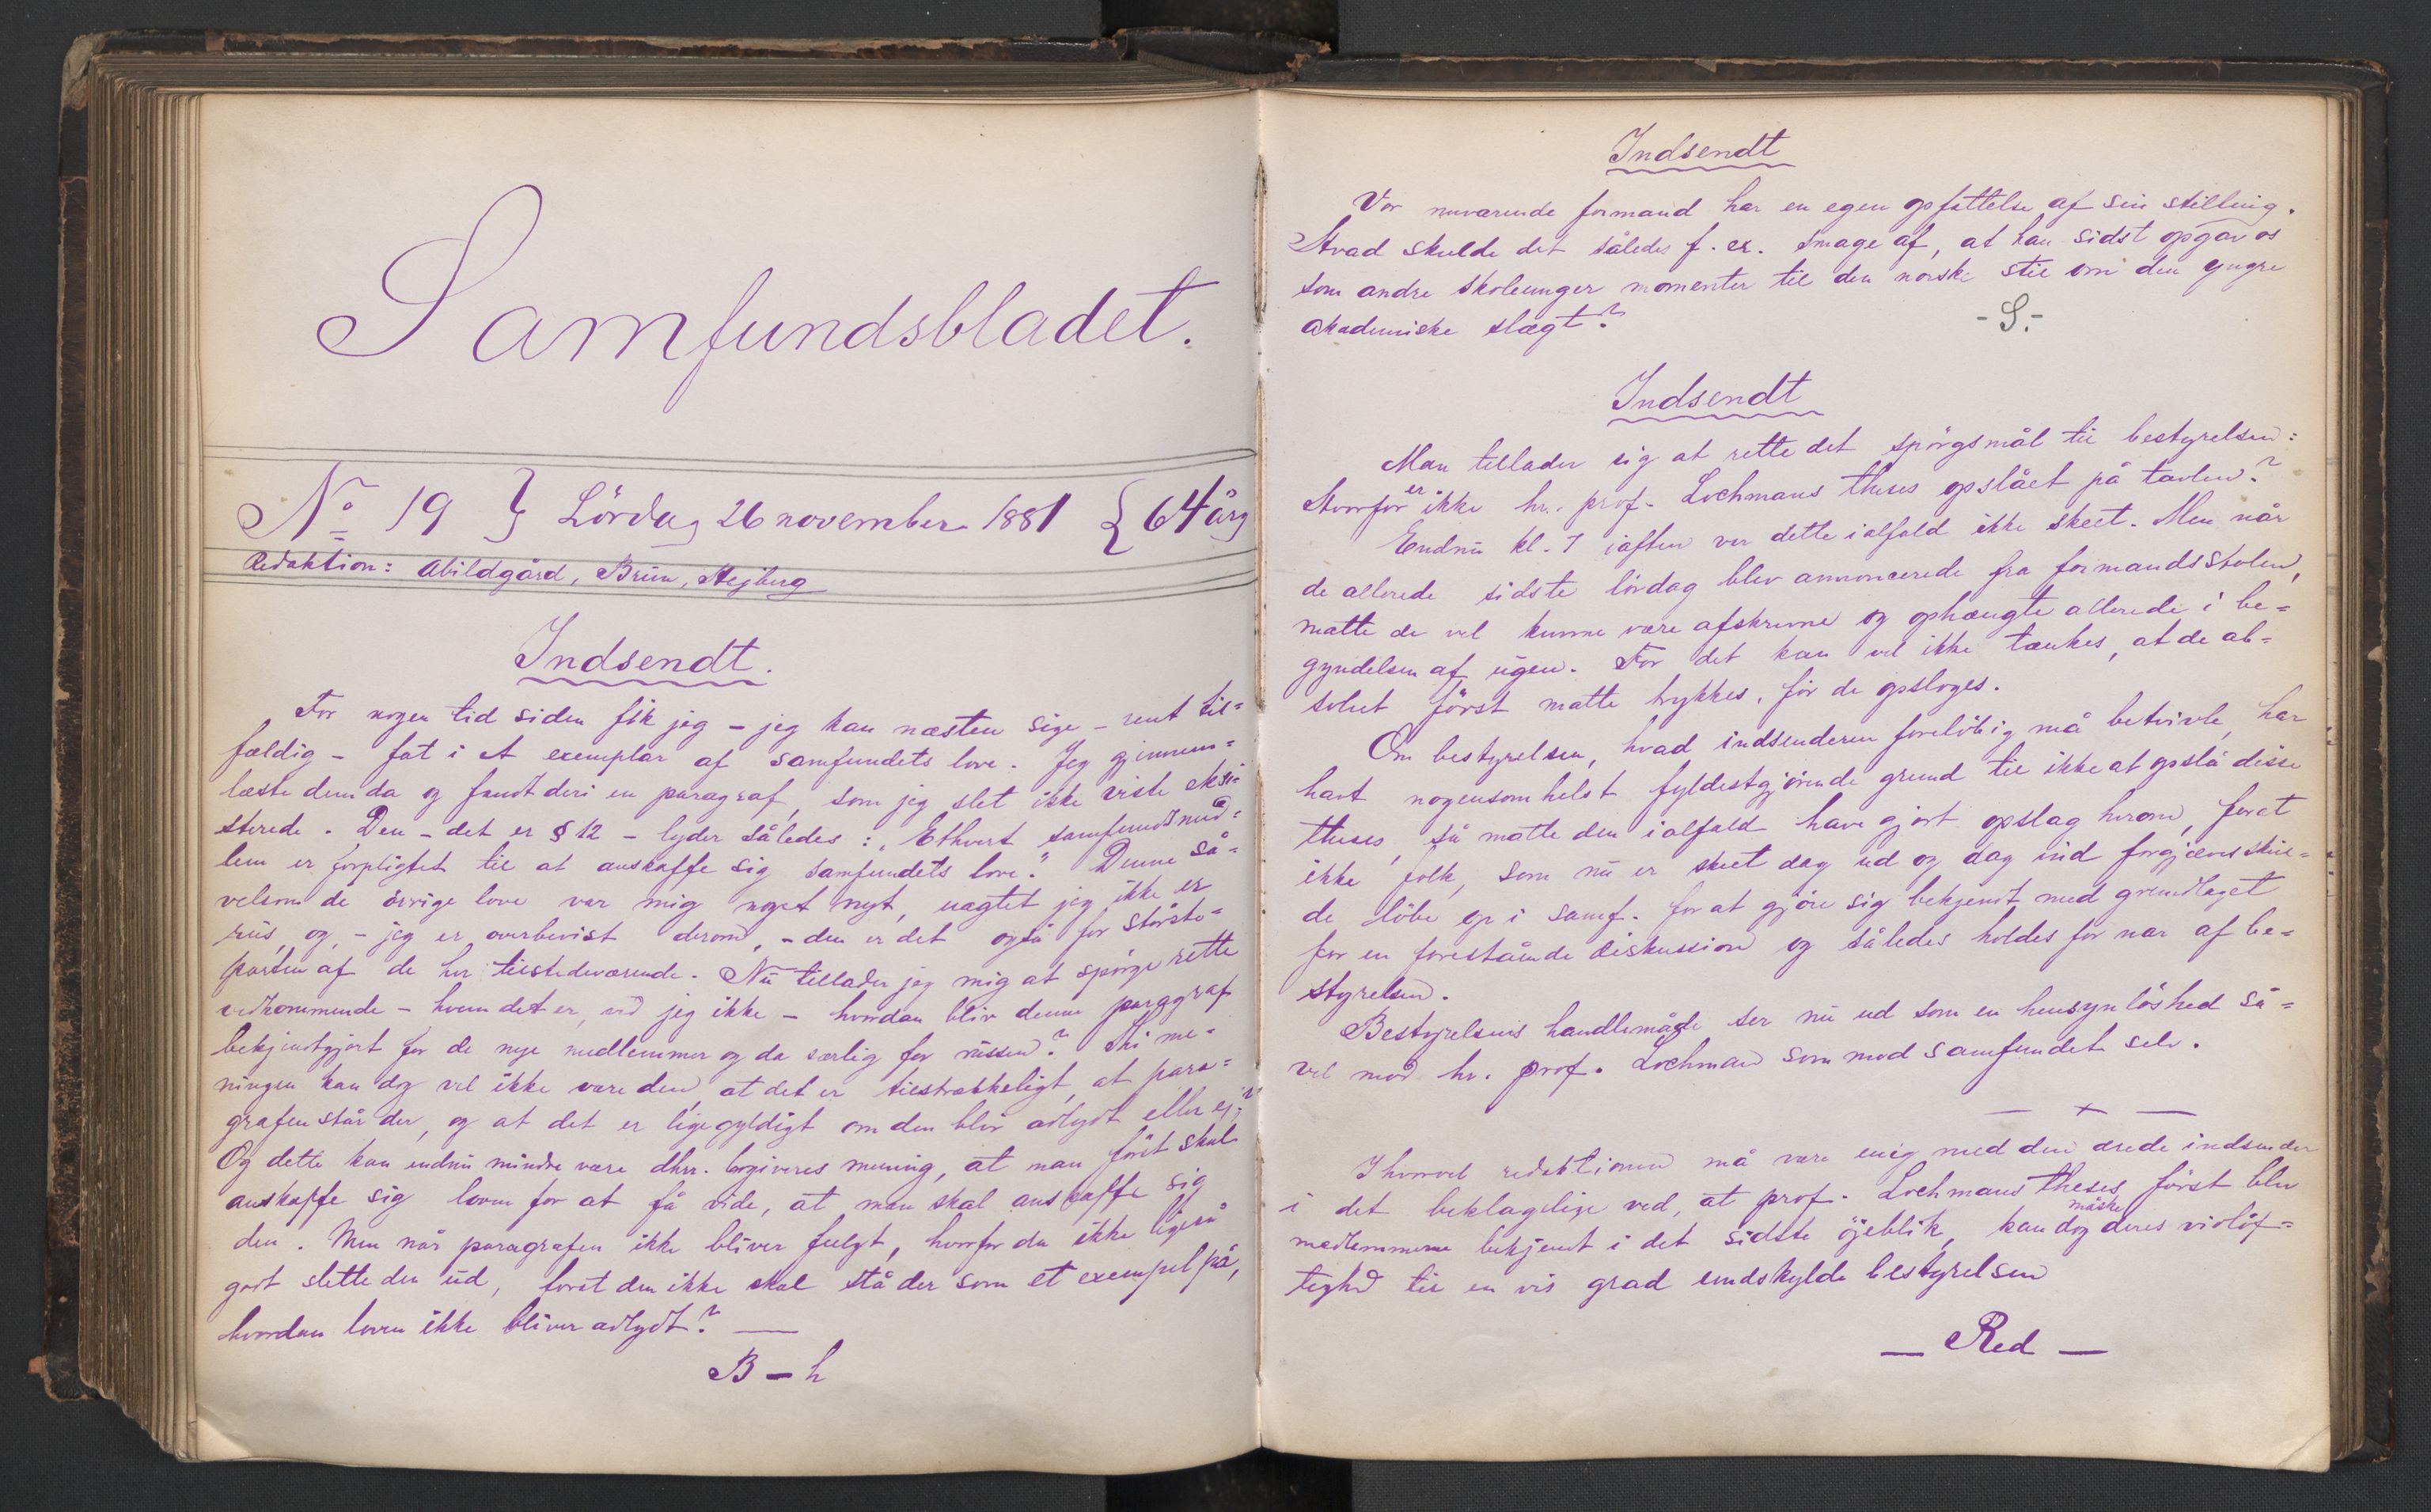 Samfundsbladet.
No 19 } Lördag 26 november 1881 { 64 årg
Redaktion: Abildgård, Brun, Hejberg
Indsendt.
For nogen tid siden fik jeg – jeg kan næsten sige – rent til=
fældig – fat i et exemplar af samfundets love. Jeg gjennem=
læste dem da og fandt deri en paragraf, som jeg slet ikke viste eksi=
sterede. Den – det er § 12 – lyder således: „Ethvert samfundsmed=
lem er forpligtet til at anskaffe sig samfundets love." Denne så=
velsom de övrige love var mig noget nyt, uagtet jeg ikke er
rus, og, – jeg er overbevist derom, – den er det også for störste=
parten af de her tilstedeværende. Nu tillader jeg mig at spörge rette
vedkommende – hvem det er, ved jeg ikke – hvordan bliv denne paragraf
bekjendtgjort for de nye medlemmer og da særlig for russen? Thi me=
ningen kan dog vel ikke være den, at det er tilstrækkeligt, at para=
grafen står der, og at det er ligegyldigt om den bliv adlydt eller ej?
Og dette kan endnu mindre være dhrr. lovgiveres mening, at man först skal
anskaffe sig loven for at få vide, at man skal anskaffe sig
den. Men når paragrafen ikke bliver fulgt, hvorfor da ikke ligeså
godt slette den ud, forat den ikke skal stå der som et exempel på,
hvordan loven ikke bliver adlydt? —
B – h
Indsendt
Vor nuværende formand har en egen opfattelse af sin stilling.
Hvad skulde det således f. ex. smage af, at han sidst opgav os
som andre skoleunger momenter til den norske stil om den yngre
akademiske slægt?
- S. -
Indsendt
Man tillader sig at rette det spörgsmål til bestyrelsen:
Hvorfor er ikke hr. prof. Lochmans theses opslået på tavlen?
Endnu kl. 7 iaften var dette ialfald ikke skeet. Men når
de allerede sidste lördag blev annoncerede fra formandsstolen,
måtte de vel kunne være afskrevne og ophængte allerede i be=
gyndelsen af ugen. For det kan vel ikke tænkes, at de ab=
solut först måtte trykkes, för de opsloges.
Om bestyrelsen, hvad indsenderen forelöbig må betvivle, har
havt nogensomhelst fyldestgjörende grund til ikke at opslå disse
theses, så måtte den ialfald have gjort opslag herom, forat
ikke folk, som nu er skeet dag ud og dag ind forgjæves skul=
de löbe op i samf. for at gjöre sig bekjendt med grundlaget
for en forestående diskussion og således holdes for nar af be=
styrelsen.
Bestyrelsens handlemåde ser nu ud som en hensynslöshed så=
vel mod hr. prof. Lochman som mod samfundet selv.
— + —
Ihvorvel redaktionen må være enig med den ærede indsender
i det beklagelige ved, at prof. Lochmans theses först blev
medlemmerne bekjendt i det sidste öjeblik, kan dog måske deres vidlöf=
tighed til en vis grad undskylde bestyrelsen
— Red —